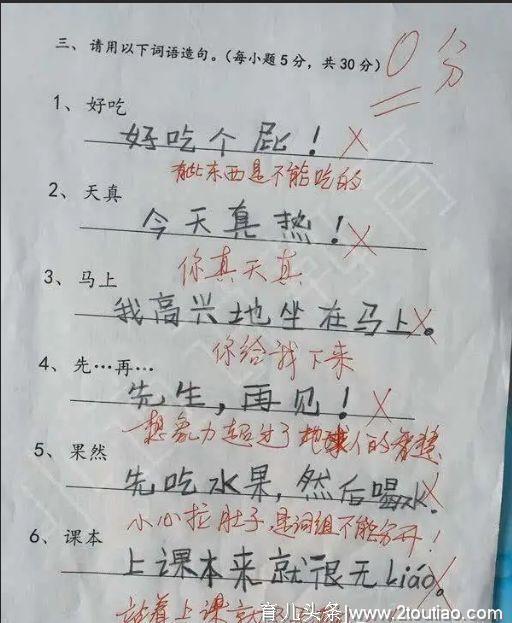 三、请用以下词语造句。(每小题5分，共30分)
0分
1、好吃
好吃个屁！
有些东西是不能吃的
2、天真
今天真热！
你真天真
3、马上
我高兴地坐在马上。
你给我下来
4、先…再…
先生，再见！
想象力超过了地球人的智慧
5、果然
先吃水果，然后喝水。
小心拉肚子 是词组不能分开！
6、课本
上课本来就很无liáo。
站着上课就
育儿头条/www.2toutiao.com